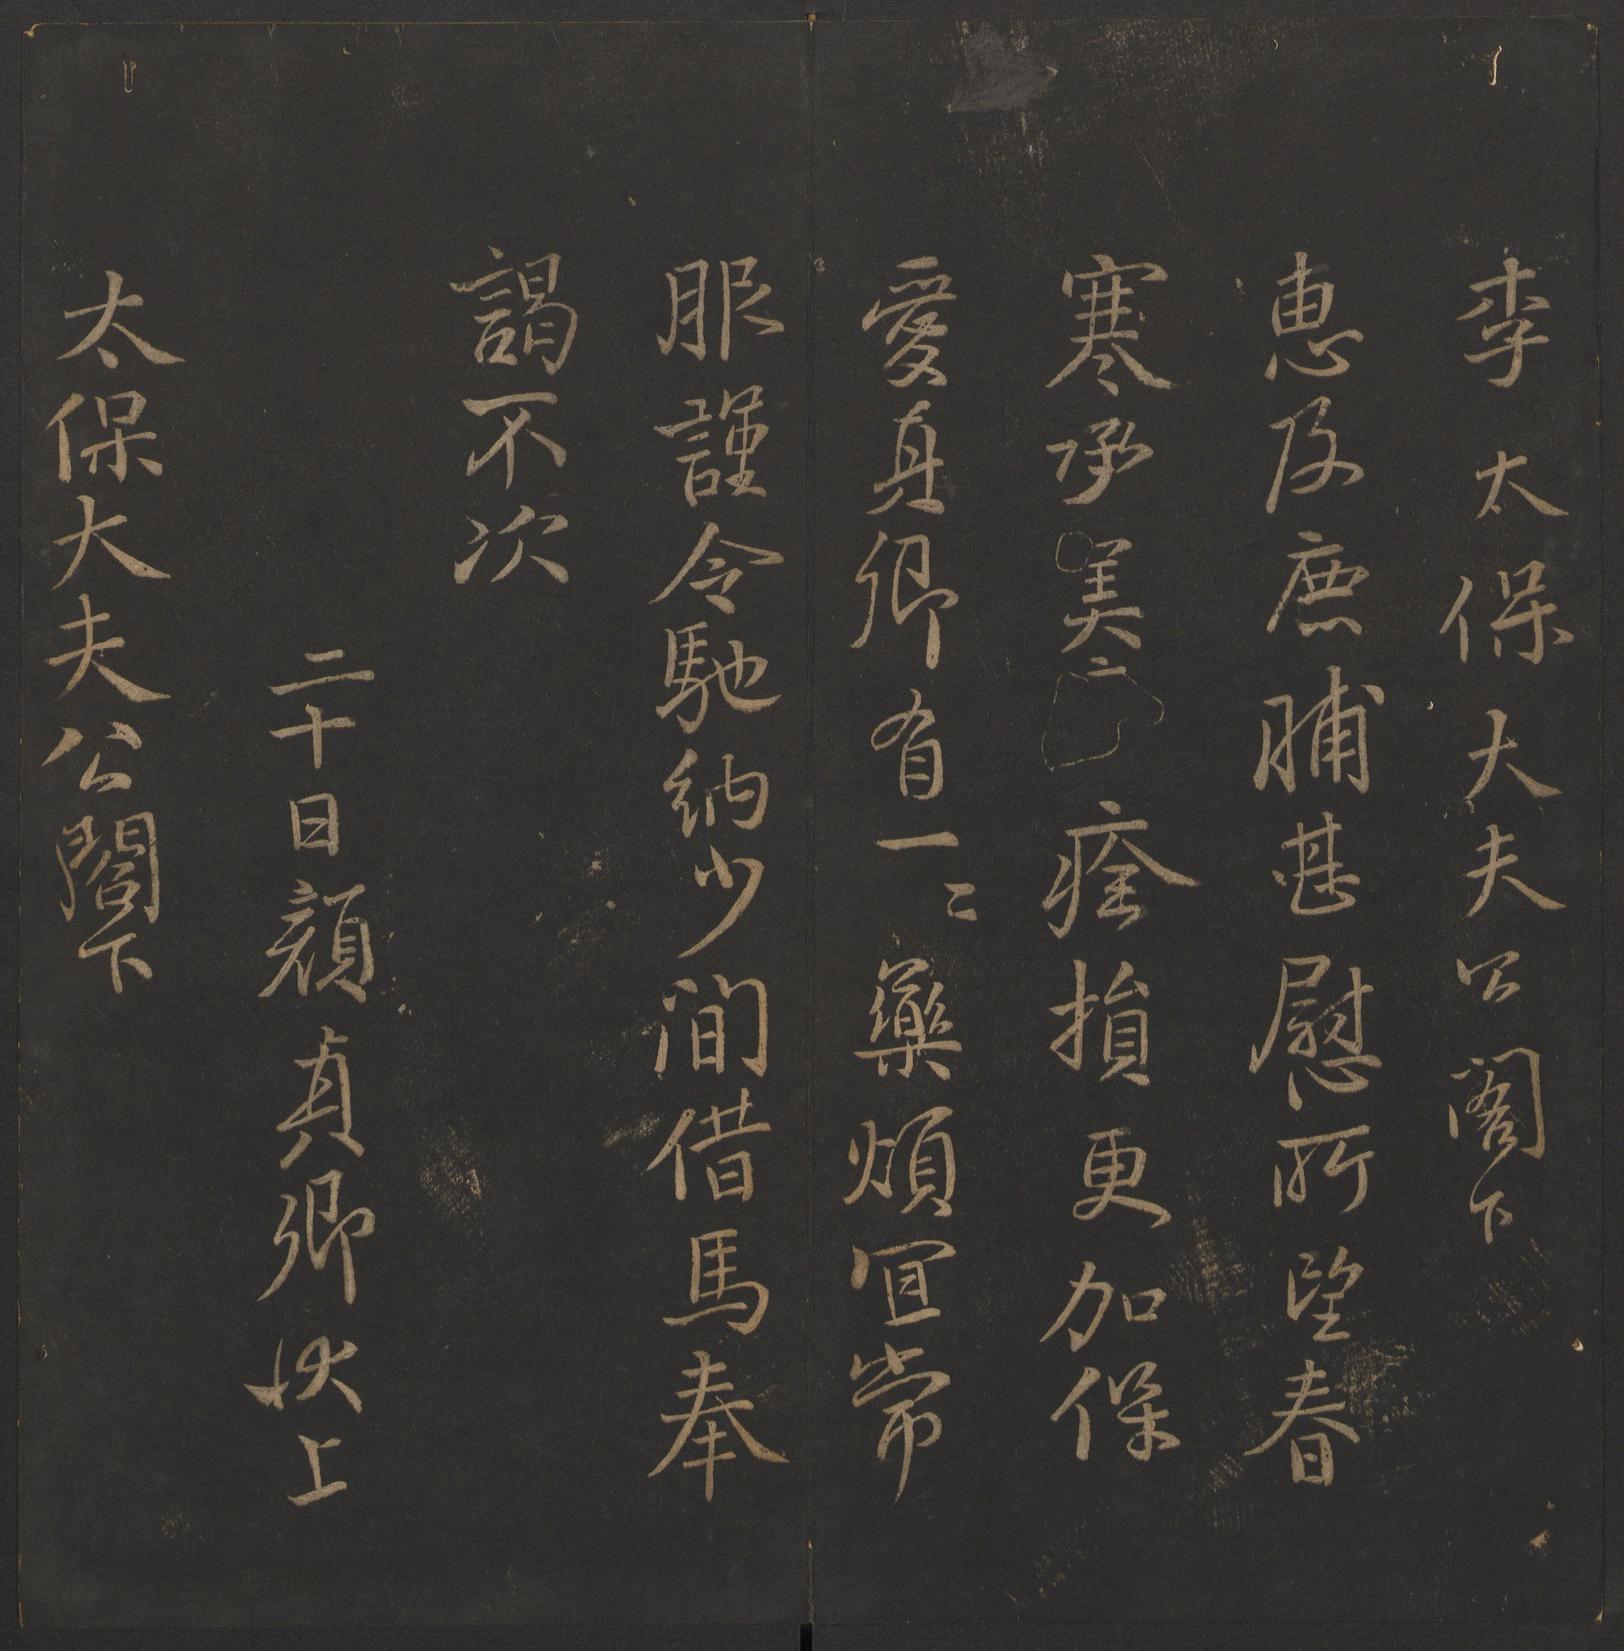 李太保大夫公閣下
惠及鹿脯甚慰所望春
寒承美痊損更加保
愛真卿有一二藥煩宜常
服謹令馳納少間借馬奉
謁不次
二十日顏真卿狀上
太保大夫公閤下